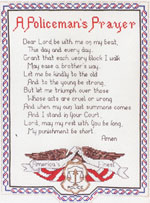 A Policeman's Prayer
Dear Lord be with me on my beat,
This day and every day.
Grant that each weary block I walk
May ease a brother's way.
Let me be kindly to the old
And to the young be strong,
But let me triumph over those
Whose acts are cruel or wrong
And when my own last summons comes
And I stand in Your Court
Lord, may my rest with You be long
My punishment be short.
Amen
America's
Finest